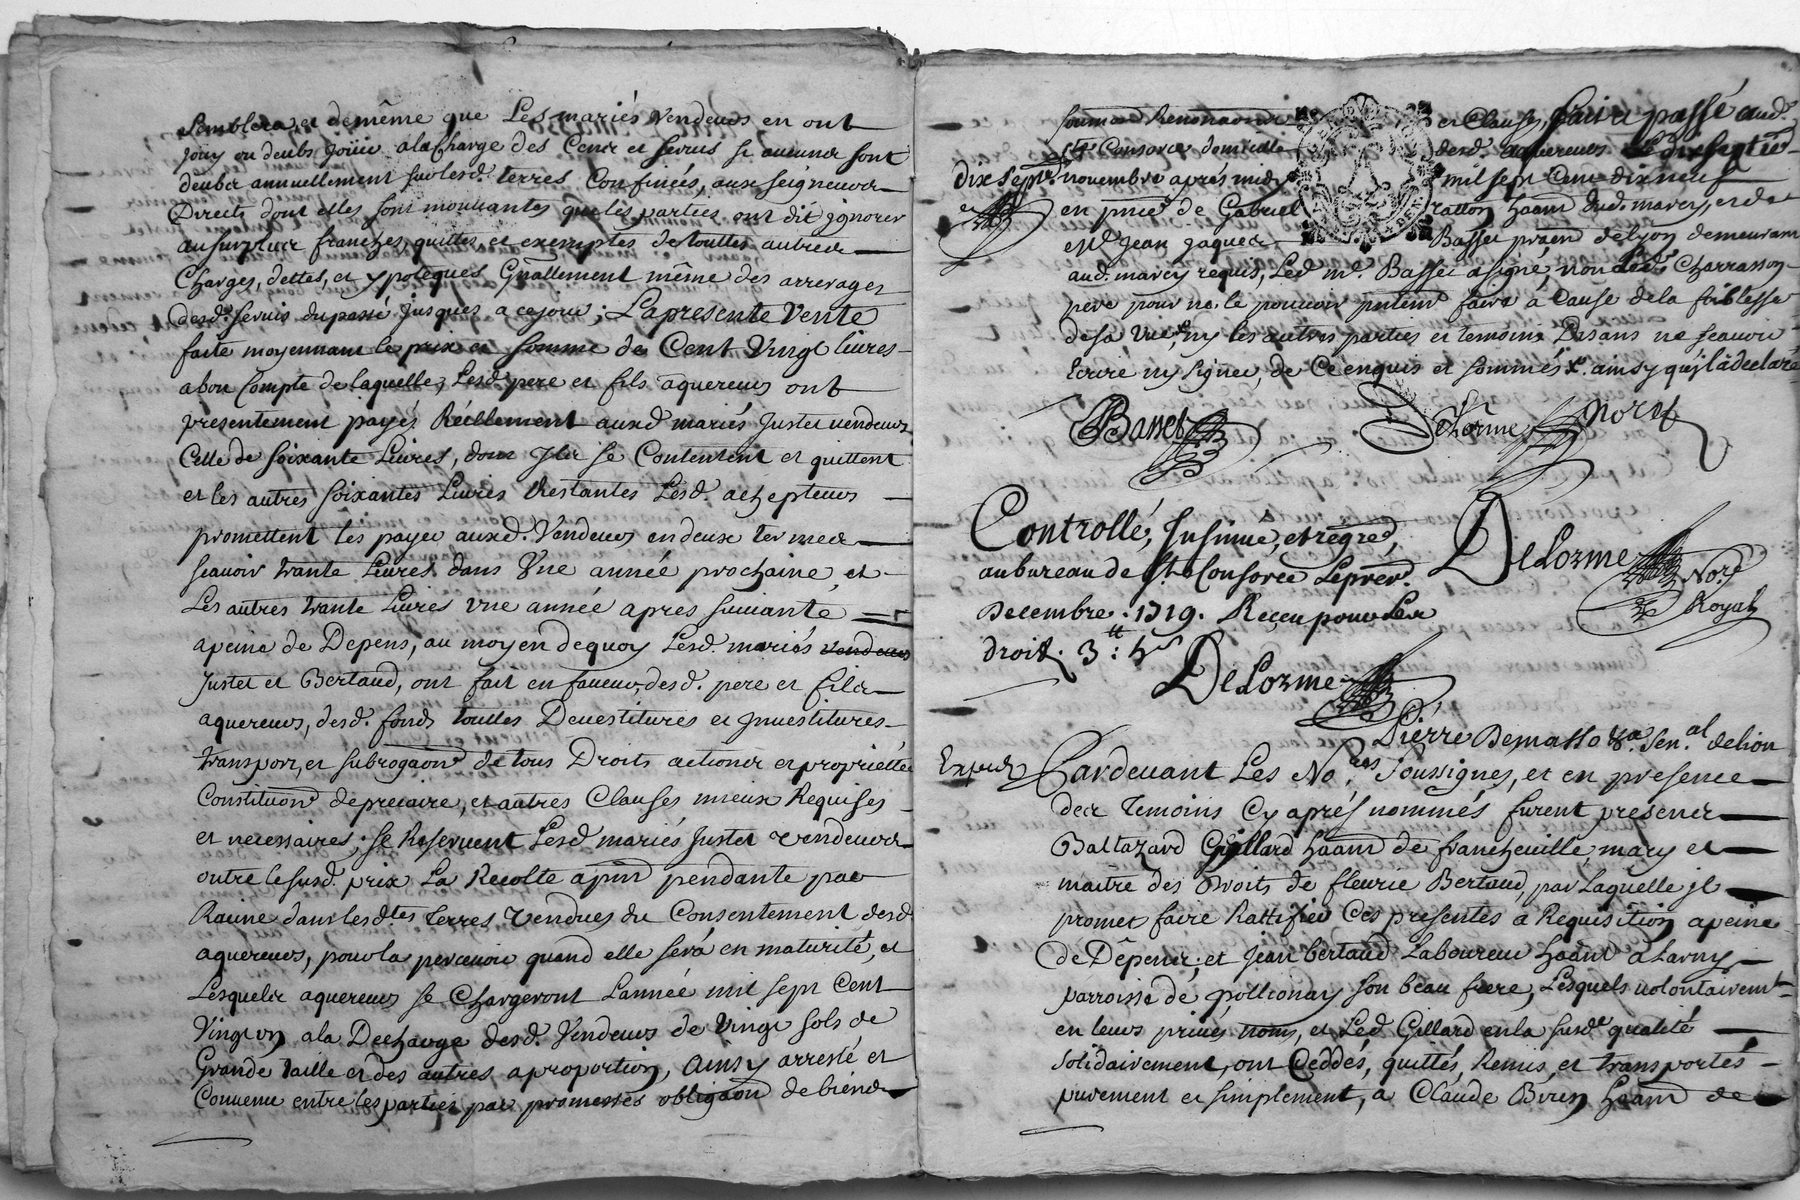 semblera, et de même que Les mariés Vendeurs en ont
jouy ou deubs joüir a la Charge des Cens et servis si aucuns sont
deubs annuellement sur lesd. terres Confinées, aux seigneurs
Directs dont elles sont mouuantes que les parties ont dit ignorer
au surplus franches, quittes et exemptes de touttes autres
Charges, dettes, et ypoteques Gnallement même des arrerages
desd. seruis du passé jusques a ce jour; La presente Vente
faite moyennant le prix et somme de Cent Vingt liures
a bon Compte de laquelle, Lesd. pere et fils aquereurs ont
presentement payés Réellement auxd mariés Justet vendeurs
Celle de soixante Liures, dont Ils se Contentent et quittent
et les autres soixantes Liures Restantes Lesd. achepteurs
promettent les payer auxd. Vendeurs en deux termes
scauoir trante Liures dans Vne année prochaine, et
Les autres trante Liures vne année apres suiuante
a peine de Depens, au moyen de quoy Lesd. mariés vendeurs
Justet et Bertaud, ont fait en faueur, desd. pere et fils
aquereurs, desd. fonds touttes Deuestitures et Inuestitures
transport, et subrogaon de tous Droits actions et proprietté
Constituon de precaire, et autres Clauses mieux Requises
et necessaires; se Reseruent Lesd mariés Justet Vendeurs
outre le susd. prix La Recolte apnt pendante par
Racine dans lesdtes terres Vendues du Consentement desd
aquereurs, pour la perceuoir quand elle sera en maturité, et
Lesquels aquereurs se Chargeront L'année mil sept Cent
Vingt vn a la Decharge desd. Vendeurs de Vingt sols de
Grande taille et des autres a proportion, Ainsy arresté et
Conuenu entre les parties par promesses obligaon de biens
soumission Renonciaon et Clauses, Fait et passé aud.
Ste Consorce domicille desd. aquereurs Le dix septie
dix septe. novembre apres midy mil sept Cent dix neuf
en pnce de Gabriel ratton haant dud. marcy, et de
Me Jean Jaques Basset praen de Lyon demeurant
aud. marcy requis, Led. mr. Basset a signé, non led. Charrasson
pere pour ne le pouuoir pntemt faire à Cause de la foiblesse
de sa Vue, ny les autres parties et temoins Disans ne scauoir
Ecrire ny signer, de Ce enquis et sommés &. ainsy qu'il a declaré
Basset Delorme Nore
Controllé, Insinué, et regred,
au bureau de Ste Consorce Le prer.
Decembre. 1719. Receu pour Les
droits. 3tt : 4s
DeLorme Nore
Royal
DeLorme
Pierre Demasso &a. Sen.al de lion
Exped Pardeuant Les No.res Soussignes, et en presence
des Temoins Cy aprés nommés furent presens
Baltazard Gillard haant de francheuille, mary et
maitre des Droits de fleurie Bertaud, par Laquelle jl
promet faire Rattifier Ces presentes a Requisition a peine
de Dêpens; et Jean bertaud Laboureur haant a Larny
parroisse de pollionay son beau frere, Lesquels uolontairemt
en leurs priués noms, et Led Gillard en la susde qualité
solidairement, ont Ceddés, quittés, Remis, et transportés
purement et simplement, a Claude Biren haant de